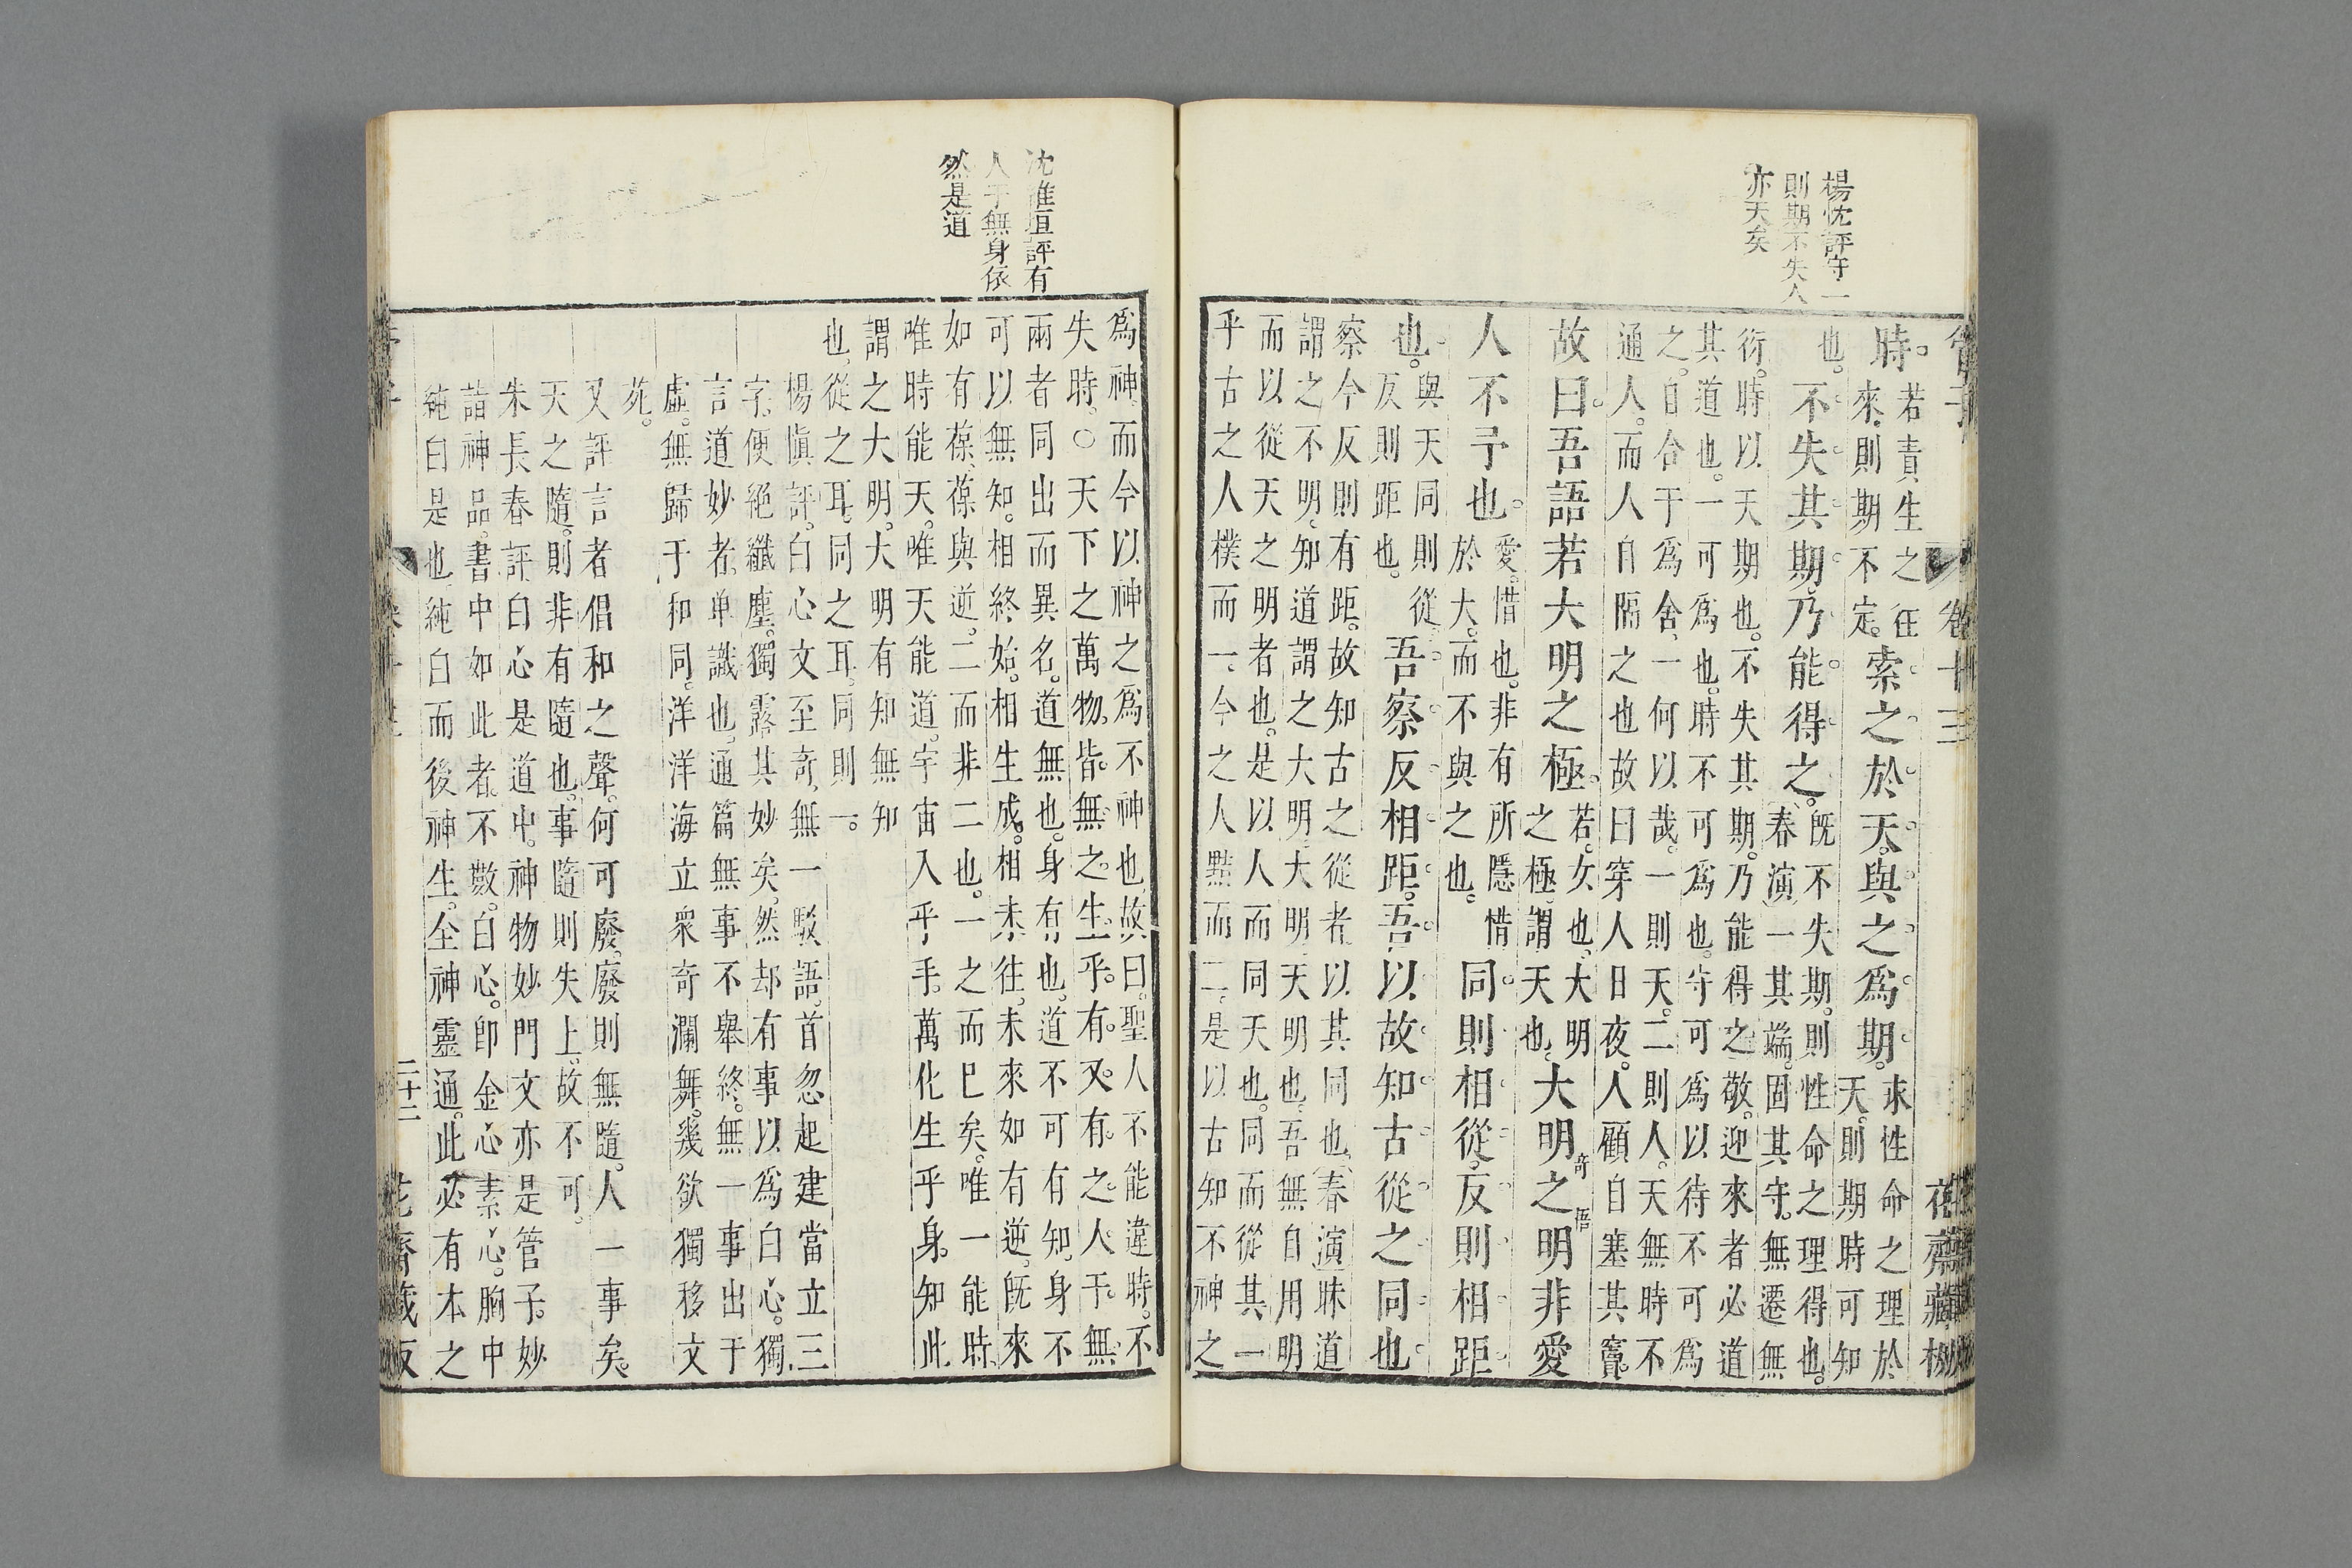 楊忱評守一
則期不失人
亦天矣
管子　卷十三　花齋藏板
時。若責生之往
來。則期不定。索之於天。與之爲期。求性命之理於
天。則期時可知
也。不失其期。乃能得之。既不失期。則性命之理得也。
春演一其端。固其守。無遷無
衍。時以天期也。不失其期。乃能得之。敬迎來者必道
其道也。一可爲也。時不可爲也。守可爲以待不可爲
之。自合于爲舍。一何以哉。一則天。二則人。天無時不
通人。而人自隔之也故曰穽人日夜。人顧自塞其竇。
故曰。吾語若大明之極。若。女也。大明
之極。謂天也。大明之明非愛
奇悟
人不予也。愛。惜也。非有所隱惜
於大。而不與之也。同則相從。反則相距
也。與天同則從
反則距也。吾察反相距。吾以故知古從之同也
察今反則有距。故知古之從者。以其同也。春演昧道
謂之不明。知道謂之大明。大明明天明也。吾無自用明
而以從天之明者也。是以人而同天也。同而從其一
乎古之人樸而一。今之人黠而二。是以古知不神之
沈維垣評有
人于無身依
然是道
爲神。而今以神之爲不神也。故曰。聖人不能違時。不
失時。○天下之萬物。皆無之生乎。有又有之。人于無
兩者同出而異名。道無也。身有也。道不可有知。身不
可以無知。相終始。相生成。相未往。未來如有逆。既來
如有葆。葆與逆。二而非二也。一之而已矣。唯一能時。
唯時能天。唯天能道。宇宙入乎手。萬化生乎身。知此
謂之大明。大明有知無知
也。從之耳。同之耳。同則一。
楊愼評。白心文至奇。無一駁語。首忽起建當立三
字。便絕纖塵。獨露其妙矣。然却有事以爲白心。獨
言道妙者。单識也。通篇無事不舉終。無一事出于
虛。無歸于和同。洋洋海立衆奇瀾舞。幾欲獨移文
苑。
又評言者倡和之聲。何可廢。廢則無隨。人一事矣。
天之隨。則非有隨也。事隨則失上。故不可。
朱長春評白心是道中。神物妙門文亦是管子。妙
詣神品。書中如此者。不數。白心。即金心素心。胸中
純白是也。純白而後神生。全神靈通。此必有本之
二十二　花齋藏板